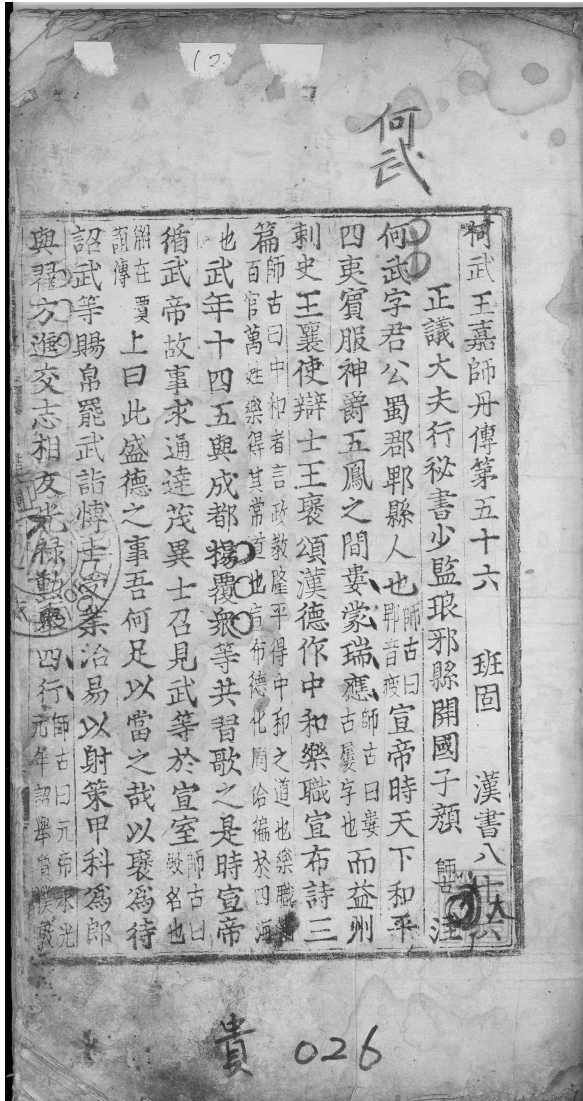 何武
何武王嘉師丹傳第五十六 班固 漢書八十六
正議大夫行祕書少監琅邪縣開國子顏 師古 注
何武字君公蜀郡郫縣人也師古曰郫音疲宣帝時天下和平
四夷賓服神爵五鳳之間婁蒙瑞應師古曰婁古屢字也而益州
刺史王襄使辯士王襃頌漢德作中和樂職宣布詩三
篇師古曰中和者言政教隆平得中和之道也樂職言百官萬姓樂得其常道也宣布德化周洽徧於四海
也武年十四五與成都楊覆衆等共習歌之是時宣帝
循武帝故事求通達茂異士召見武等於宣室師古曰殿名也
解在賈誼傳上曰此盛德之事吾何足以當之哉以襃爲待
詔武等賜帛罷武詣博士受業治易以射策甲科爲郎
與翟方進交志相友光祿勳舉四行師古曰元帝永光元年詔舉質樸敦
貴 026
(2)